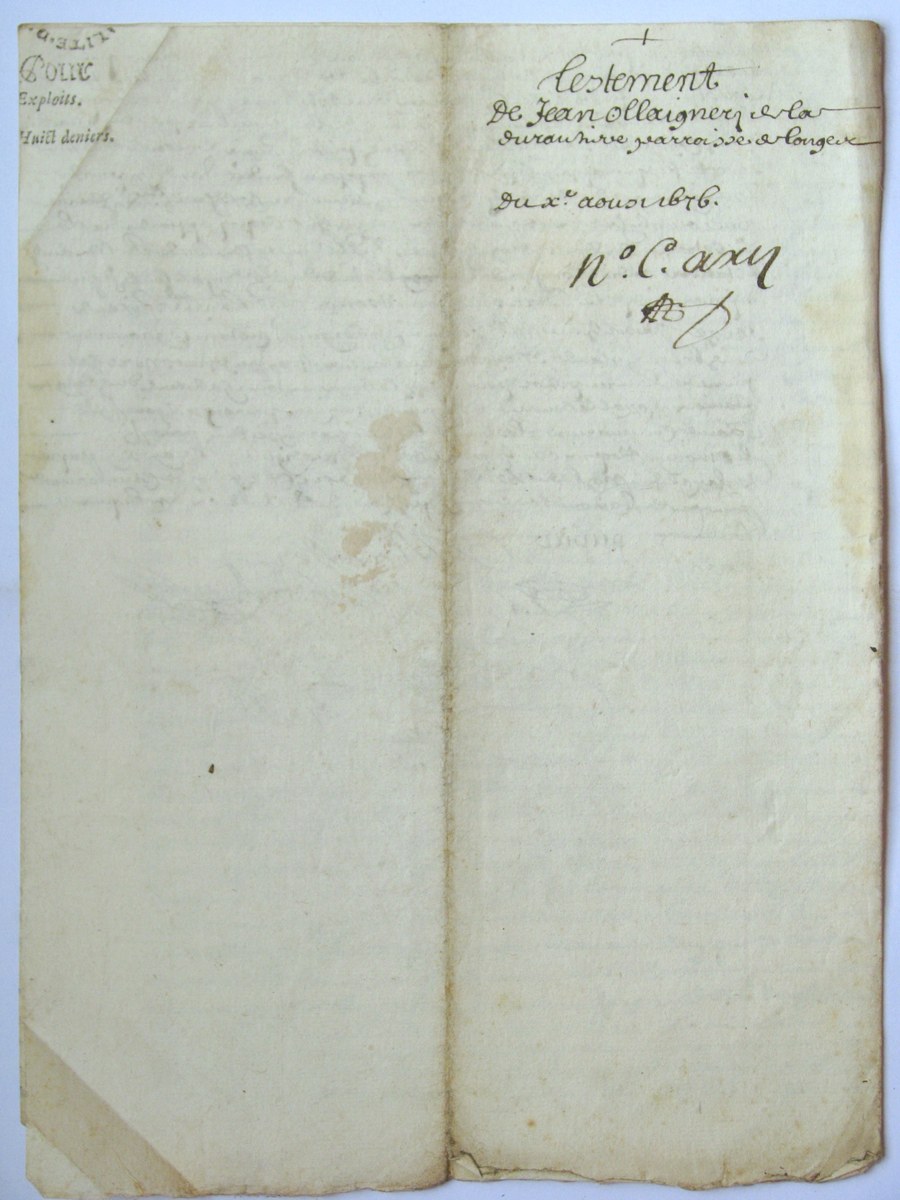 Pour
Exploits.
Huict deniers.
Testement
De Jean ollaignerj de la
duranhire parroisse de longes
du x.e aoust 1676.
n.o C.o axy